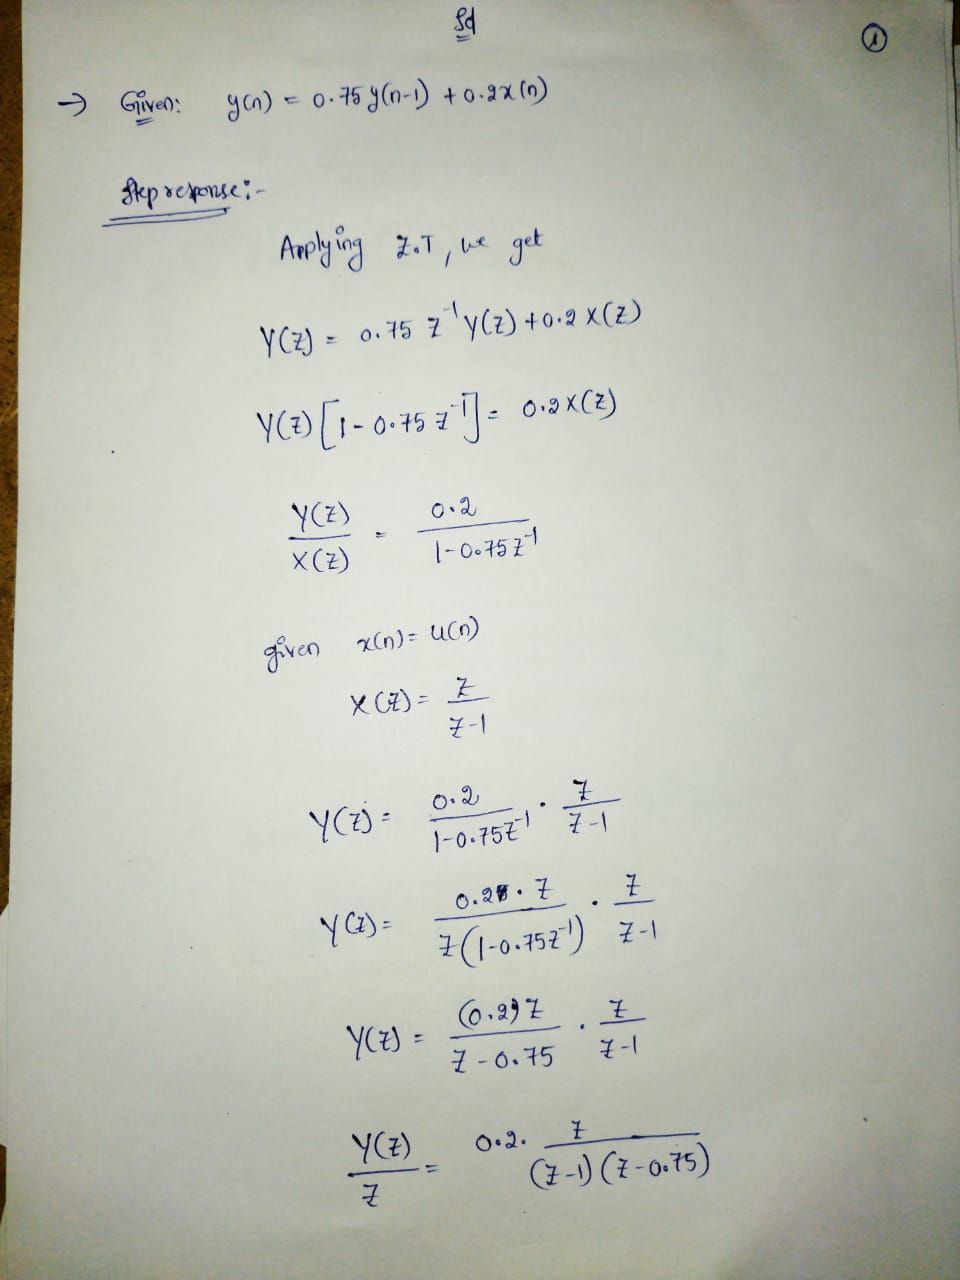 Sol
①
→ Given: y(n) = 0.75 y(n-1) + 0.2x(n)
Step response:-
Applying Z.T, we get
Y(Z) = 0.75 Z⁻¹ Y(Z) + 0.2 X(Z)
Y(Z) [1 - 0.75 Z⁻¹] = 0.2X(Z)
Y(Z)/X(Z) = 0.2/(1-0.75Z⁻¹)
given x(n) = u(n)
X(Z) = Z/(Z-1)
Y(Z) = 0.2/(1-0.75Z⁻¹) · Z/(Z-1)
Y(Z) = 0.2 · Z/(Z(1-0.75Z⁻¹)) · Z/(Z-1)
Y(Z) = (0.2)Z/(Z-0.75) · Z/(Z-1)
Y(Z)/Z = 0.2 · Z/((Z-1)(Z-0.75))